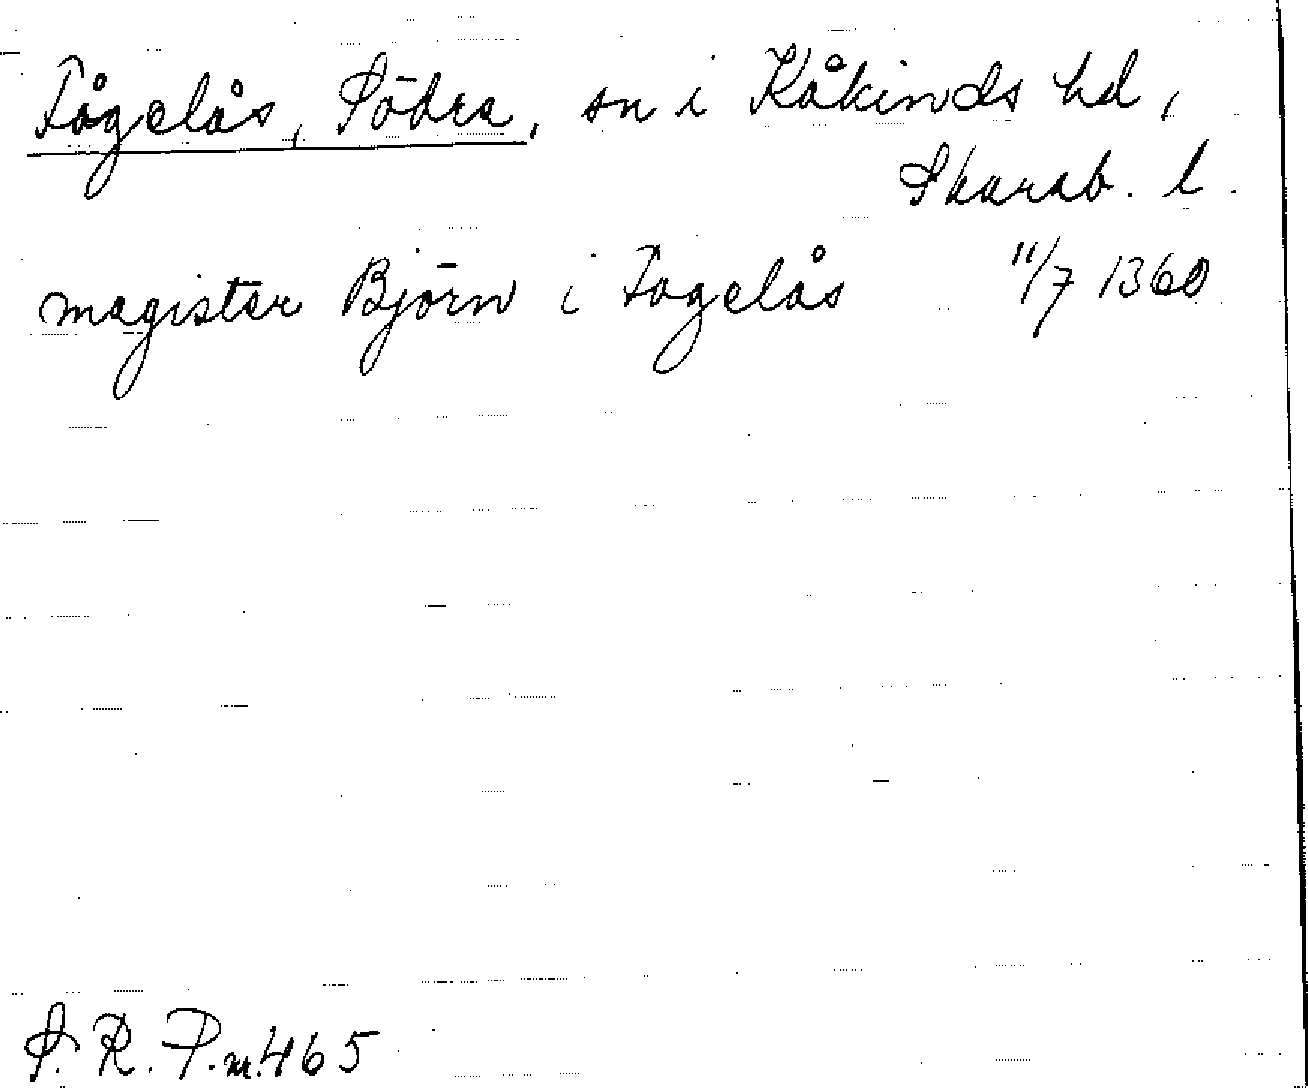 Fågelås, Södra, sn i Kåkinds hd,
Skarab. l.
magister Björn i Fogelås 11/7 1360
S. R. P. nr. 465